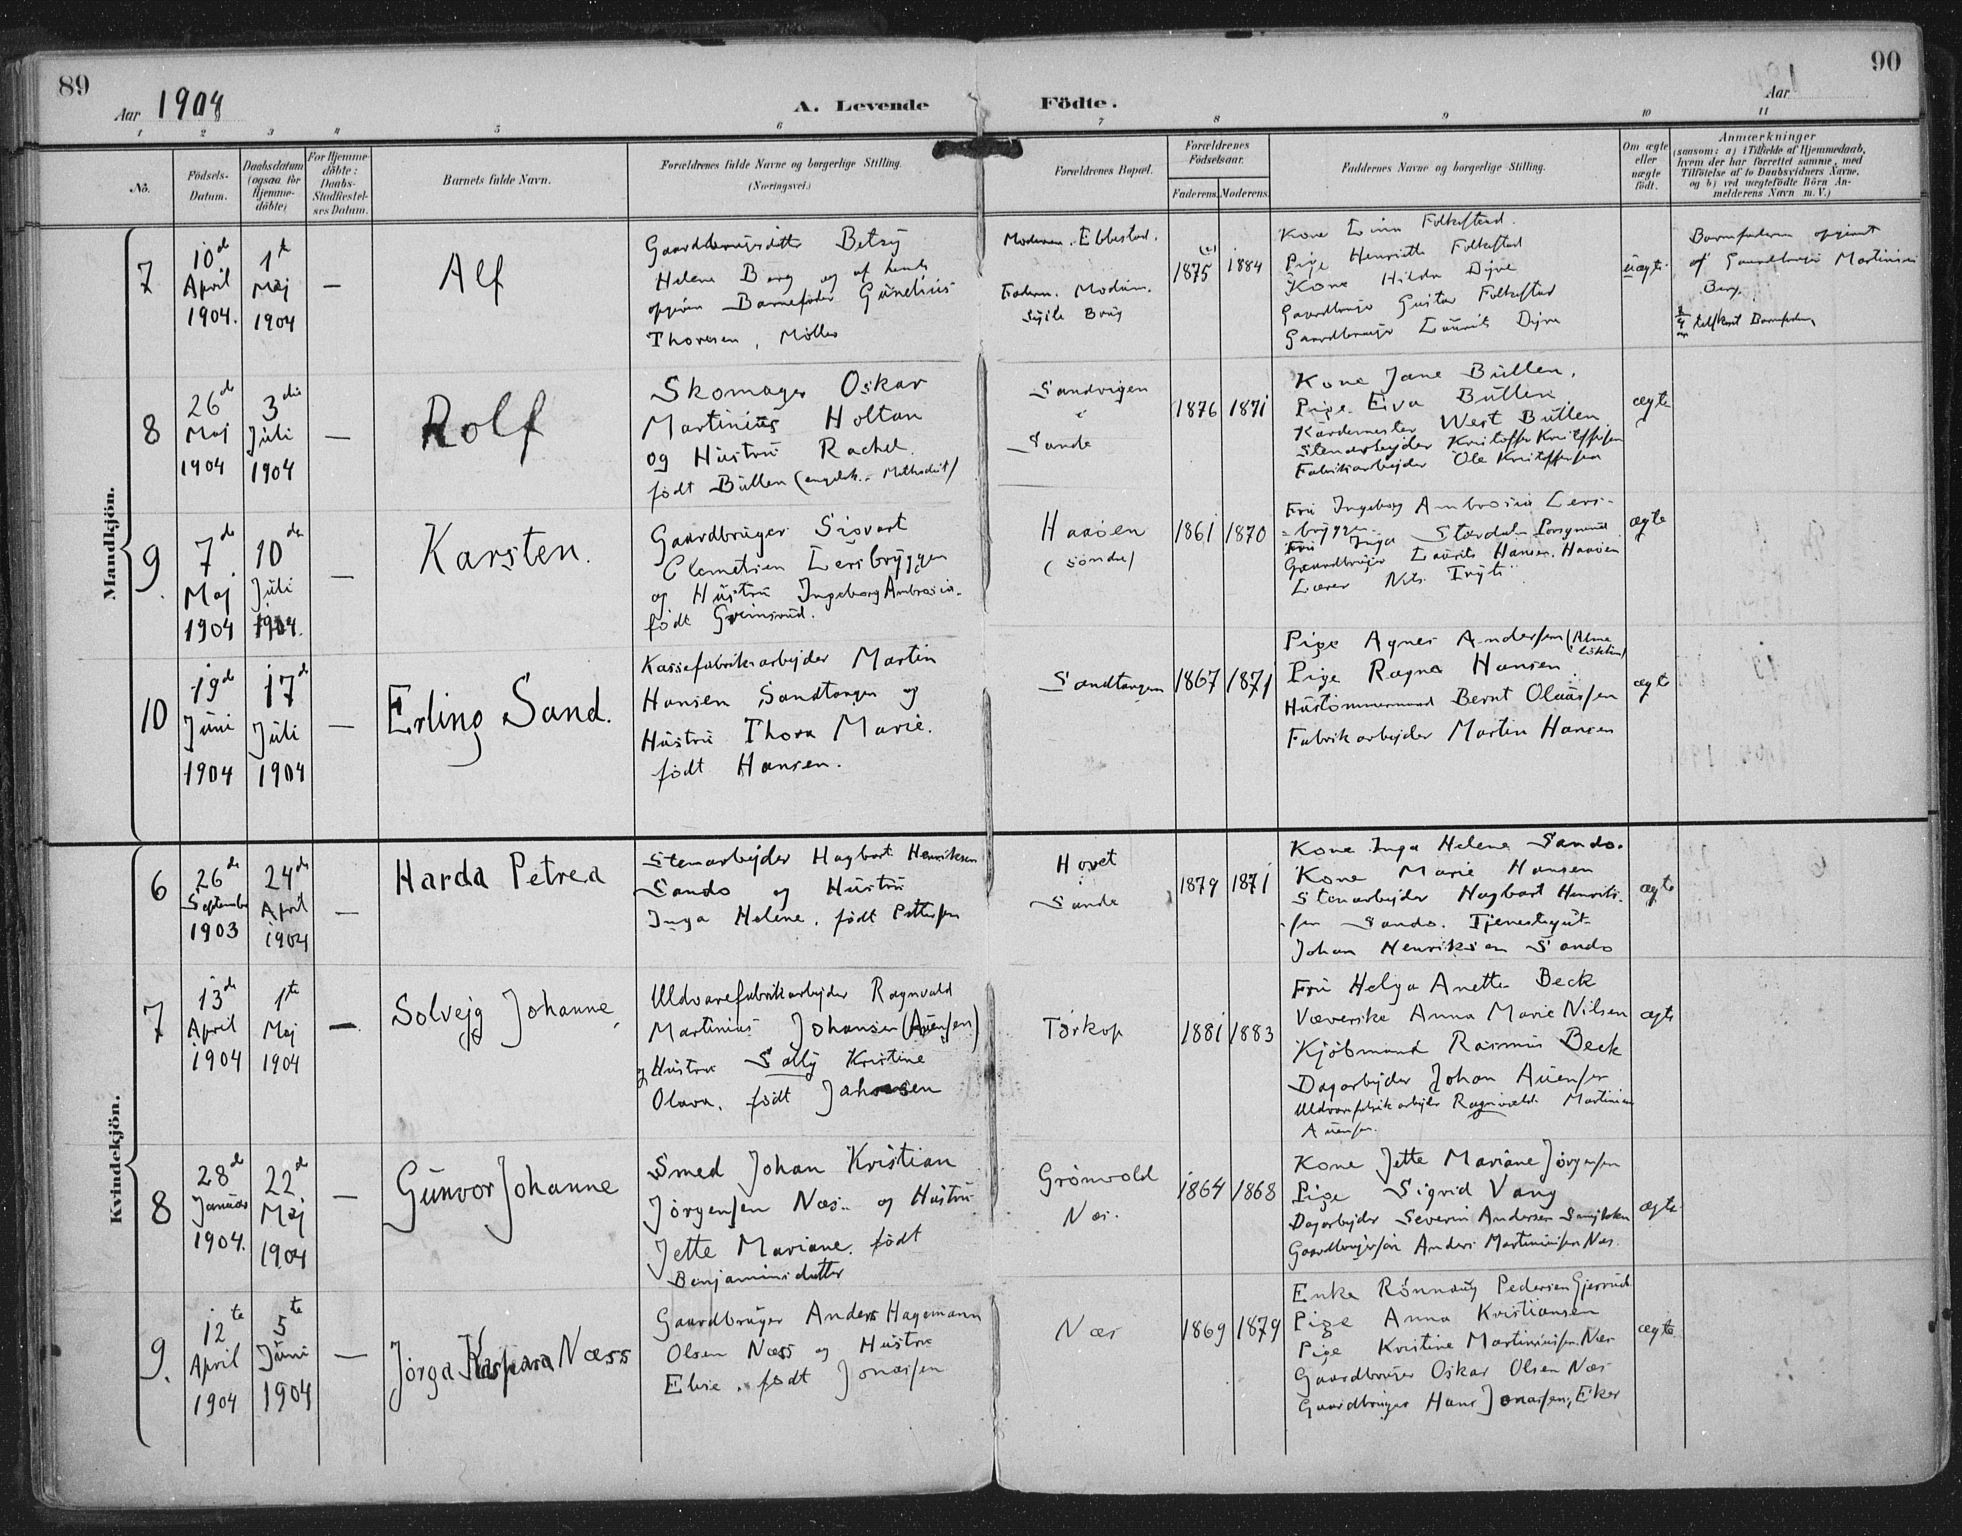 89
Aar 1904
A. Levende
Födte.
Aar
90
1 2 3 4 5 6 7 8 9 10 11
No.
Födsels-Datum.
Daabsdatum (ogsaa for Hjemme-döbte)
For Hjemme-döbte: Daabs-Stadfæstel-ses Datum.
Barnets fulde Navn.
Forældrenes fulde Navne og borgerlige Stilling.
(Næringsvei.)
Forældrenes Bopæl.
Forældrenes Födselsaar.
Faderens. Moderens.
Faddernes Navne og borgerlige Stilling.
Om ægte eller uægte födt.
Anmærkninger
(saasom: a) i Tilfælde af Hjemmedaab, hvem der har forrettet samme, med Tilföielse af to Daabsvidners Navne, og b) ved uægtefödte Börn An-melderens Navn m. V.)
Mandkjön.
7
10de April 1904.
1te Maj 1904
—
Alf
Gaardbrugerdatter Betzy
Helene Berg og af hende
opgiven Barnefader Gunelius
Thoresen, Møller
Moderen: Ebbestad.
Faderen. Modum.
1875 1884
Kone Lina Folkestad.
Pige Henriette Folkestad
Kone Hilda Dyve
Gaardbruger Gustav Folkestad
Gaardbruger Laurits Dyve
uægte
Barnefaderen opgivet
af Gaardbruger Martinius
Berg.
8
26de Maj 1904
3die Juli 1904
—
Rolf
Skomager Oskar
Martinius Holtan
og Hustru Rachel
født Bullen (engelsk. Methodist)
Sandvigen
i
Sande
1876 1871
Kone Jane Bullen.
Pige Eva Bullen
West Bullen
Stenarbejder Kristoffer Kristoffersen
Fabrikarbejder Ole Kristoffersen
ægte
9.
7de Maj 1904
10de Juli 1904.
—
Karsten.
Gaardbruger Sigvart
Clemetsen Lersbryggen
og Hustru Ingeborg Ambrosia.
født Greinsrud.
Haaøen
(søndre)
1861 1870
Fru Ingeborg Ambrosia Lers-
bryggen
Fru Inga Størdal Porsgrund
Gaardbruger Laurits Hansen, Haaøen
Lærer Nils
ægte
10
19de Juni 1904
17de Juli 1904
—
Erling Sand.
Kassefabrikarbejder Martin
Hansen Sandtangen og
Hustru Thora Marie.
født Hansen.
Sandtangen
1867 1871
Pige Agnes Andersen
Pige Ragna Hansen
Hustømmermand Bernt Olaussen
Fabrikarbejder Martin Hansen
ægte
Kvindekjön.
6
26de September 1903
24de April 1904
—
Harda Petrea
Stenarbejder Hagbart Henriksen
Sando og Hustru
Inga Helene. født Pettersen
Hovet
Sande
1879 1871
Kone Inga Helene Sando.
Kone Marie Hansen
Stenarbejder Hagbart Henrik-
sen Sando. Tjenestegut
Johan Henriksen Sando
ægte
7
13de April 1904
1te Maj 1904
—
Solvejg Johanne
Uldvarefabrikarbejder Ragnvald
Martinius Johansen (Auensen)
og Hustru Sally Kristine
Olava. født Johansen
Torkop
1881 1883
Fru Helga Anette Beck
Væverske Anna Marie Nilsen
Kjøbmand Rasmus Beck
Dagarbejder Johan Auensen
Uldvarefabrikarbejder Ragnvald Martinius
Auensen.
ægte
8
28de Januar 1904.
22de Maj 1904
—
Gunvor Johanne
Smed Johan Kristian
Jørgensen Næs og Hustru
Jette Mariane. født
Benjaminsdatter
Grønvold
Næs.
1864 1868
Kone Jette Mariane Jørgensen
Pige Sigrid Vang
Dagarbejder Severin Andersen
Gaardbrugersøn Anders Martiniussen Næs.
ægte
9.
12te April 1904
5te Juni 1904
—
Jørga Kaspara Næss
Gaardbruger Anders Hagemann
Olsen Næss og Hustru
Elise. født Jonassen
Næs
1869 1879
Enke Rønnaug Pedersen Gjersrud
Pige Anna Kristiansen
Pige Kristine Martiniussen Næs
Gaardbruger Oskar Olsen Næs
Gaardbruger Hans Jonassen, Eker
ægte